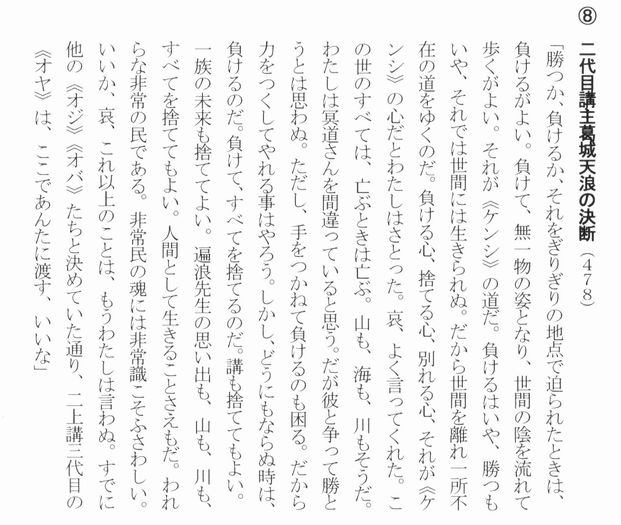 ⑧ 二代目講主葛城天浪の決断（478）
「勝つか、負けるか、それをぎりぎりの地点で迫られたときは、
負けるがよい。負けて、無一物の姿となり、世間の陰を流れて
歩くがよい。それが《ケンシ》の道だ。負けるはいや、勝つも
いや、それでは世間には生きられぬ。だから世間を離れ一所不
在の道をゆくのだ。負ける心、捨てる心、別れる心、それが《ケ
ンシ》の心だとわたしはさとった。哀、よく言ってくれた。こ
の世のすべては、亡ぶときは亡ぶ。山も、海も、川もそうだ。
わたしは冥道さんを間違っていると思う。だが彼と争って勝と
うとは思わぬ。ただし、手をつかねて負けるのも困る。だから
力をつくしてやれる事はやろう。しかし、どうにもならぬ時は、
負けるのだ。負けて、すべてを捨てるのだ。講も捨ててもよい。
一族の未来も捨ててよい。遍浪先生の思い出も、山も、川も、
すべてを捨ててもよい。人間として生きることさえもだ。われ
らな非常の民である。非常民の魂には非常識こそふさわしい。
いいか、哀、これ以上のことは、もうわたしは言わぬ。すでに
他の《オジ》《オバ》たちと決めていた通り、二上講三代目の
《オヤ》は、ここであんたに渡す、いいな」